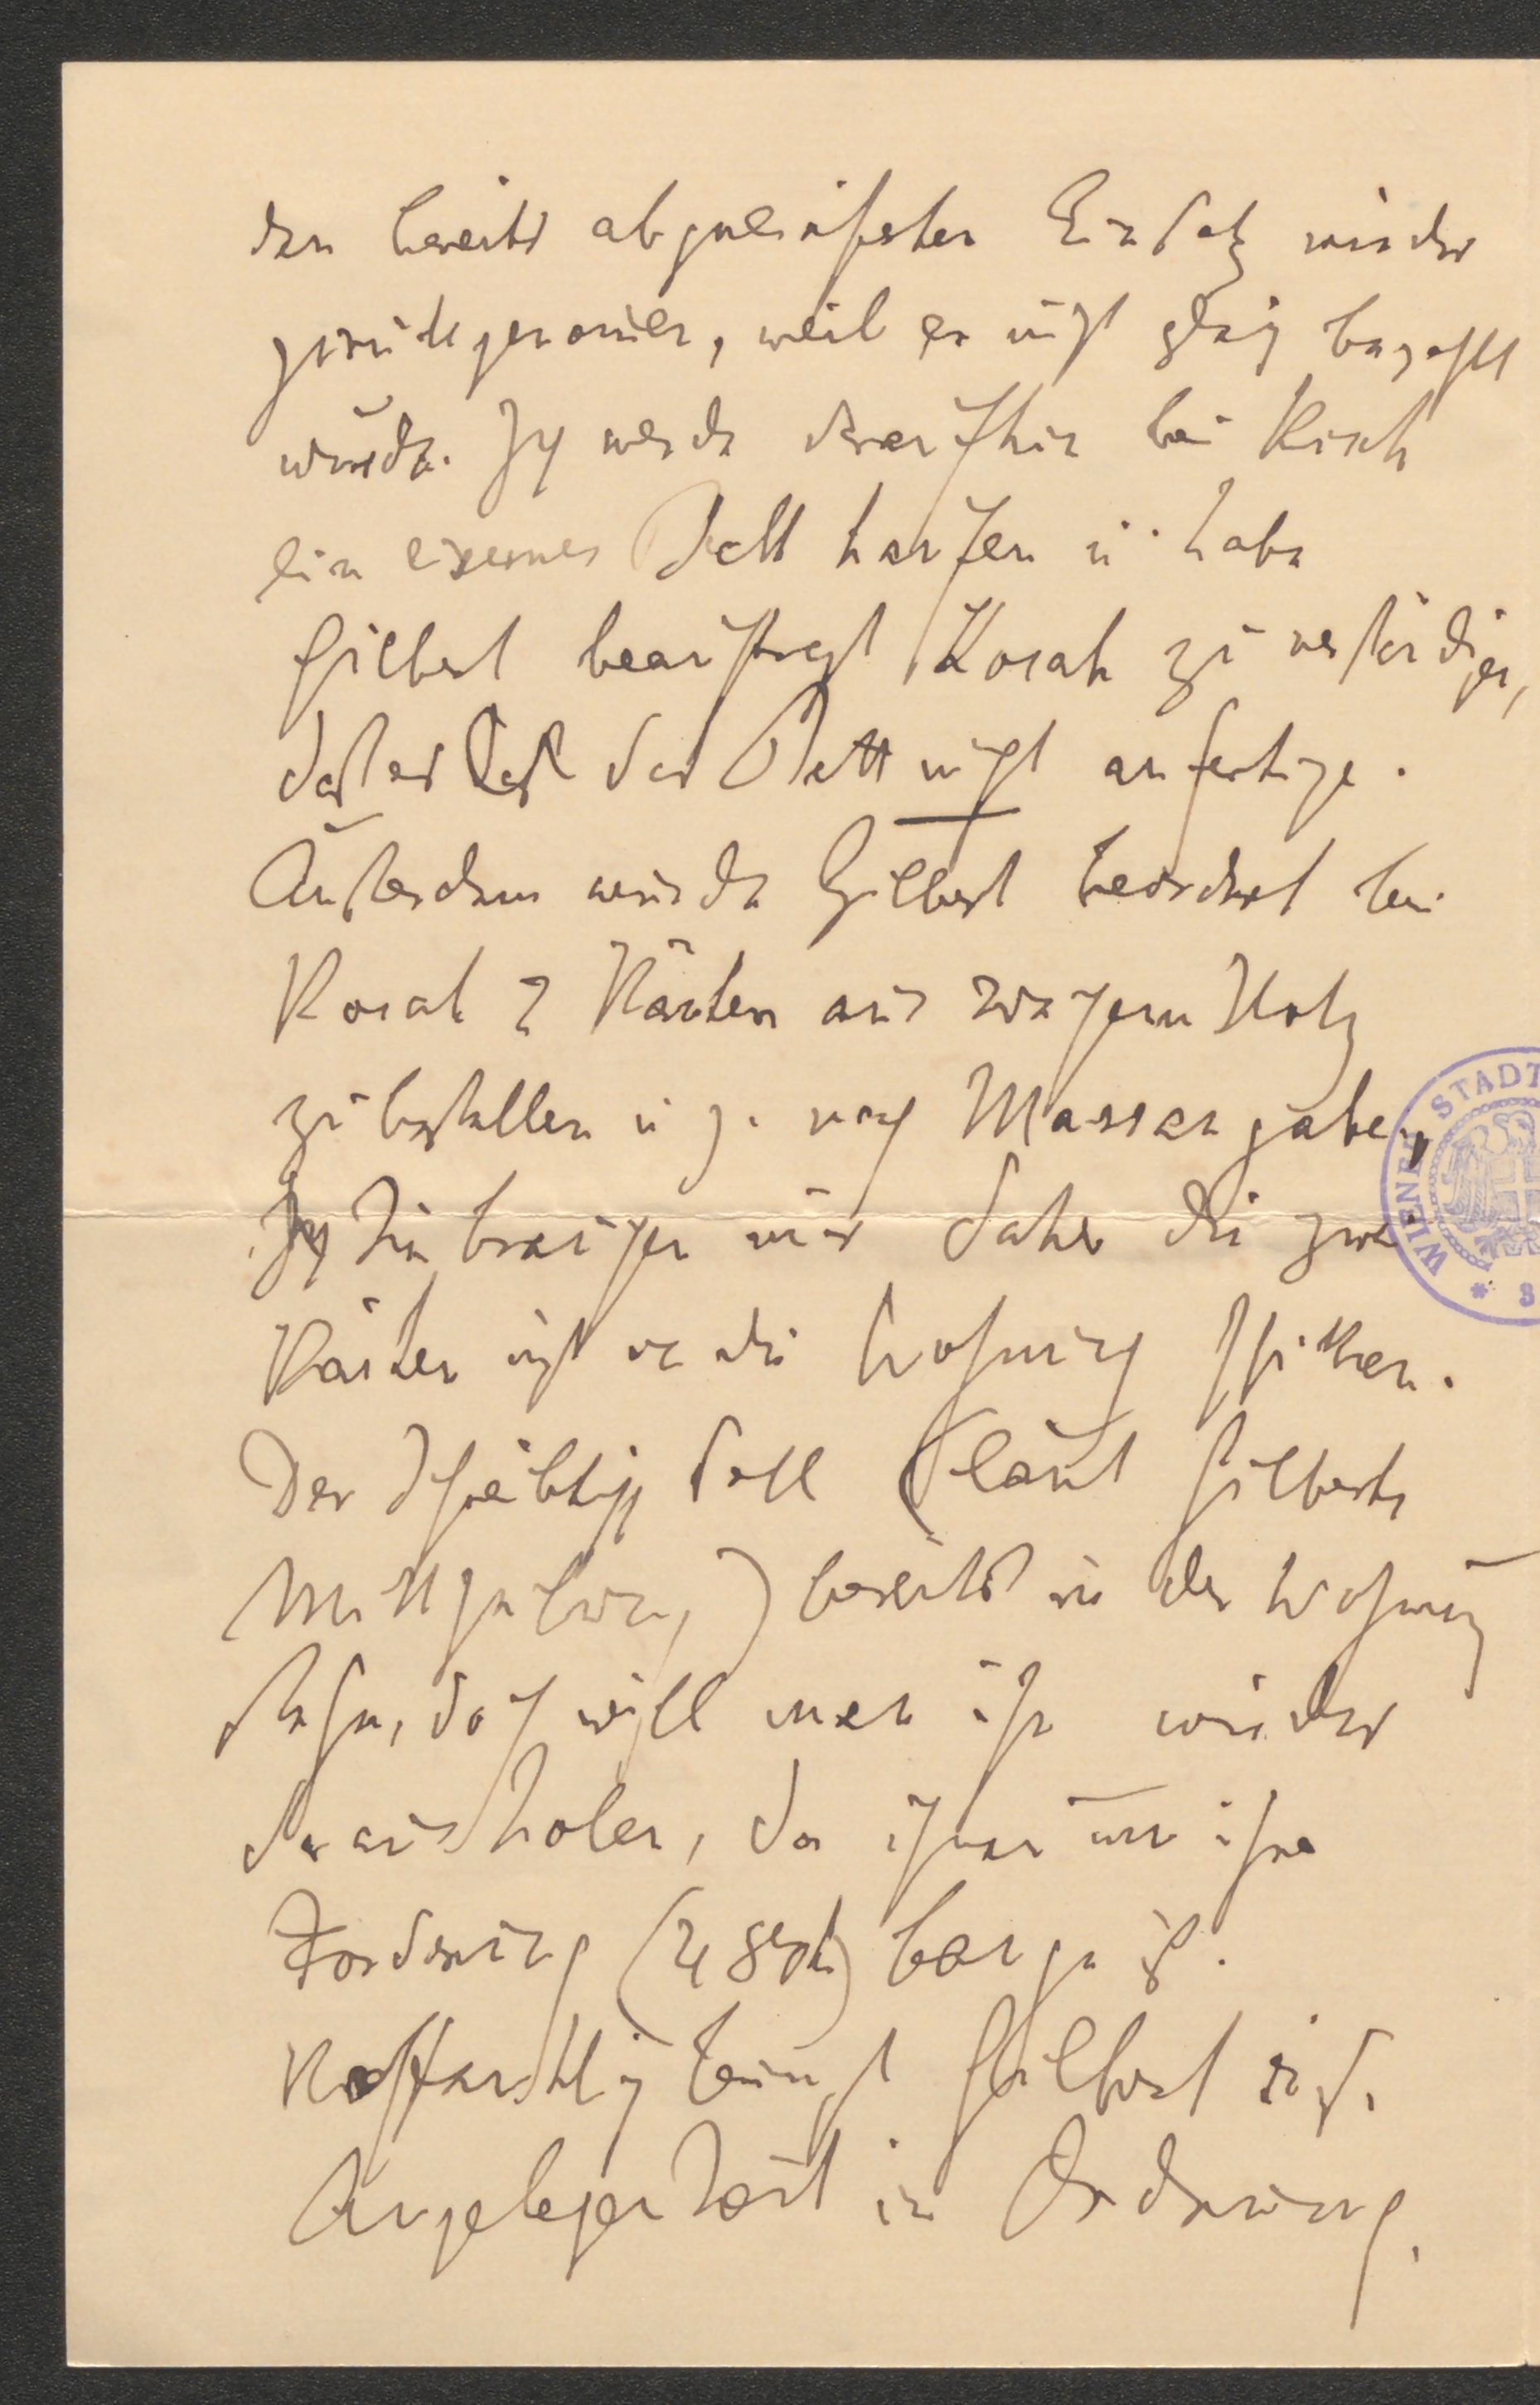 den bereits abgelieferten Einsatz wieder
zurückgenommen, weil er nicht gleich bezahlt
wurde. Ich werde daraufhin bei Kisch
ein eisernes Bett kaufen u. habe
Gilbert beauftragt Korak zu verständigen,
daß er das Bett nicht anfertige.
Außerdem wurde Gilbert beordert bei
Korak 2 Kästen aus weichem Holz
zu bestellen u. z. nach Massangabe,
Sie brauchen mir daher die zwei
Kästen nicht in die Wohnung schicken.
Der Schreibtisch soll (laut Gilberts
Mitteilung) bereits in der Wohnung
stehn, doch will man ihn wieder
herausholen, da ihnen um ihre
Forderung (48 fl) bange ist.
Hoffentlich bringt Gilbert diese
Angelegenheit in Ordnung.
WIENER STADT